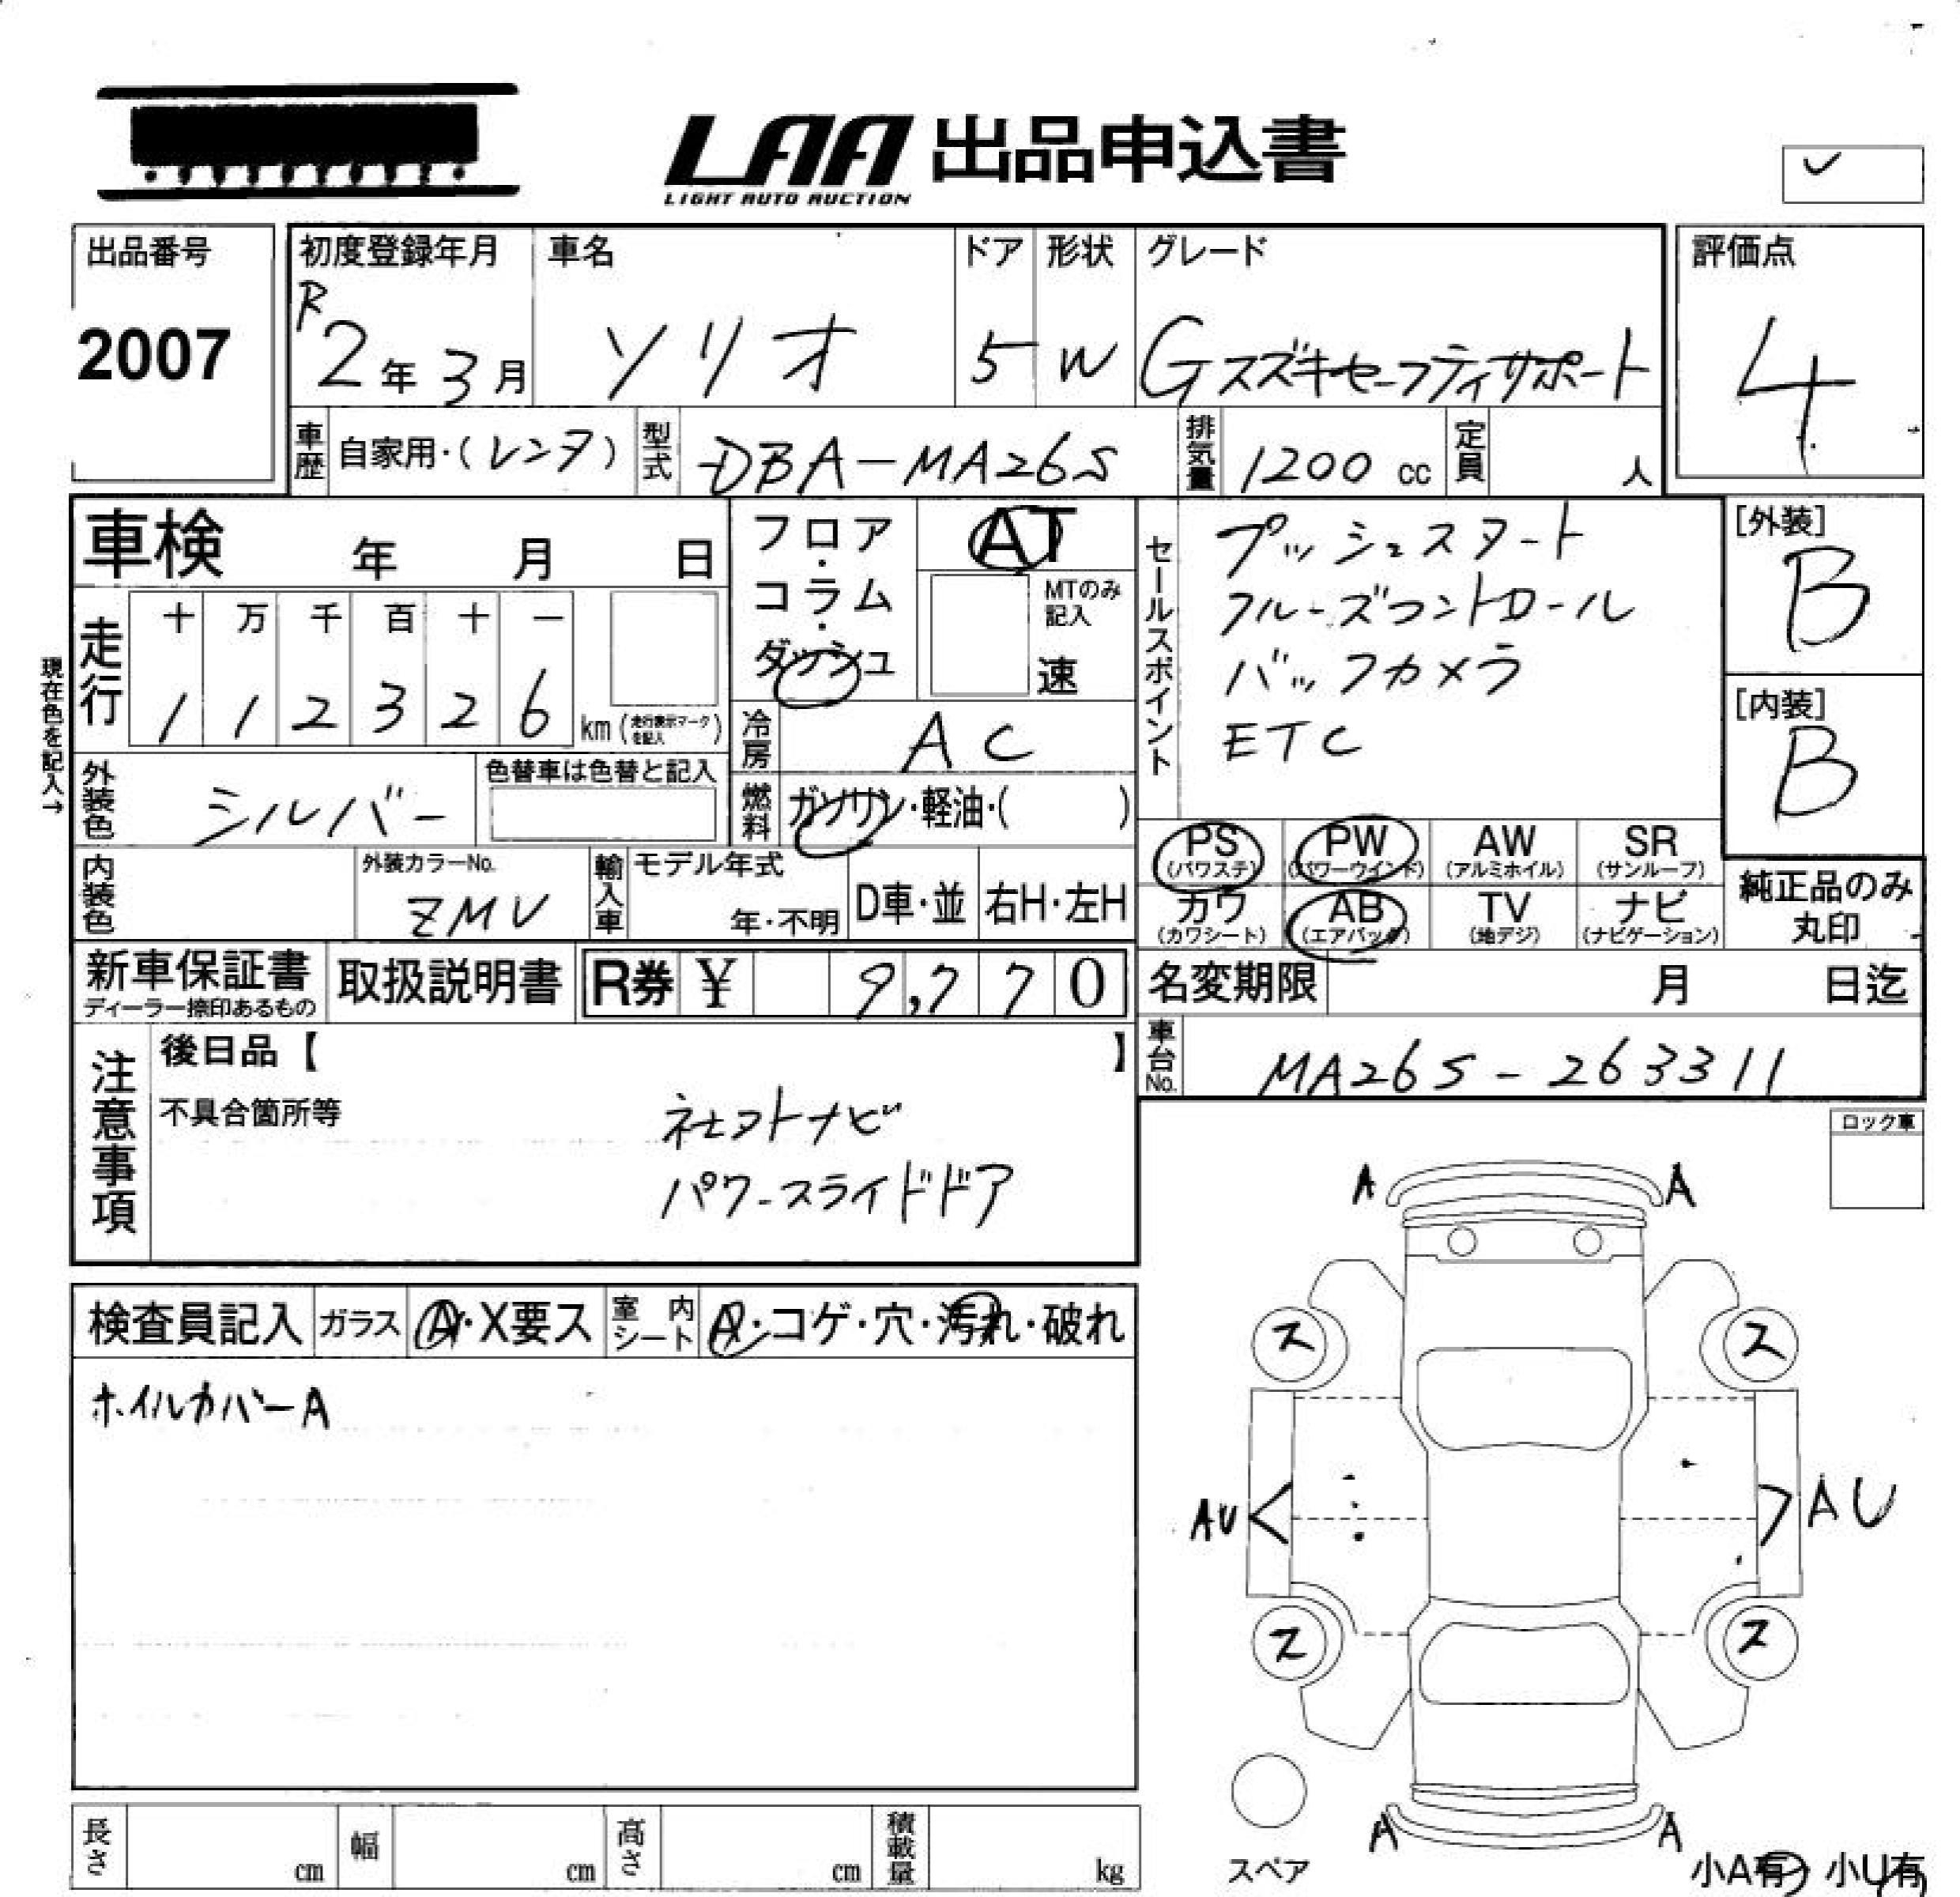 LAA 出品申込書
LIGHT AUTO AUCTION
✓
出品番号
2007
初度登録年月
R2年3月
車名
ソリオ
ドア
5
形状
W
グレード
Gスズキセーフティサポート
評価点
4
車歴
自家用・(レンタ)
型式
DBA-MA26S
排気量
1200 cc
定員
人
車検 年 月 日
現在色を記入→
走行
十 万 千 百 十 一
1 1 2 3 2 6 km (走行表示マークを記入)
フロア・コラム・ダッシュ
AT
MTのみ記入
速
冷房
AC
燃料
ガソリン・軽油・( )
外装色
シルバー
色替車は色替と記入
内装色
外装カラーNo.
ZMV
輸入車
モデル年式
年・不明
D車・並
右H・左H
セールスポイント
プッシュスタート
クルーズコントロール
バックカメラ
ETC
[外装]
B
[内装]
B
PS
(パワステ)
PW
(パワーウインド)
AW
(アルミホイル)
SR
(サンルーフ)
カワ
(カワシート)
AB
(エアバック)
TV
(地デジ)
ナビ
(ナビゲーション)
純正品のみ
丸印
新車保証書
ディーラー捺印あるもの
取扱説明書
R券 ¥ 9,770
名変期限 月 日迄
車台No.
MA26S-263311
注意事項
後日品【 】
不具合箇所等
社外ナビ
パワースライドドア
ロック車
検査員記入
ガラス
A・X要ス
室内シート
A・コゲ・穴・汚れ・破れ
ホイルカバーA
A A
ス ス
AU AU
ス ス
A A
スペア
小A有 小U有
長さ cm
幅 cm
高さ cm
積載量 kg